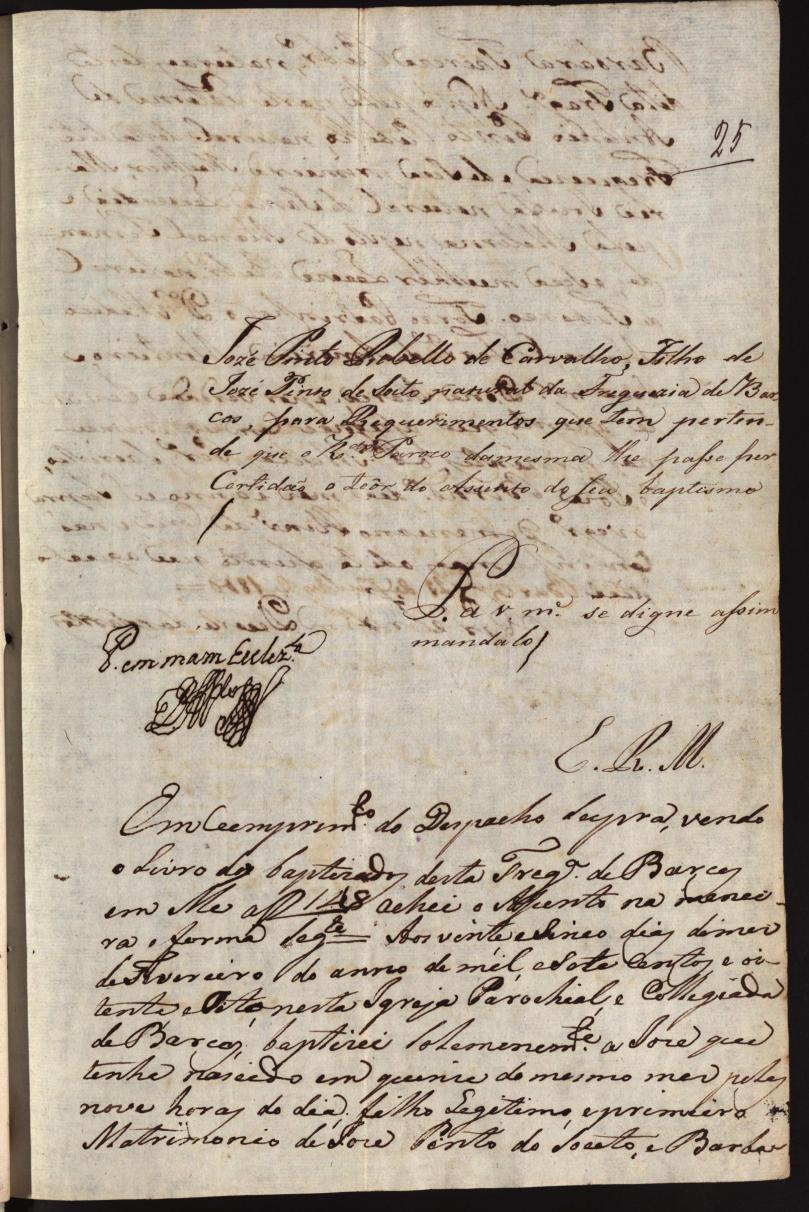 25
Jozé Pinto Rabello de Carvalho, Filho de
Jozé Pinto de Soito natural da Freguezia de Bar
cos, para Requerimentos que tem perten-
de que o R.do Paroco damesma lhe passe per
Certidaõ o teôr do Assento do seu baptismo
P. a V m.ce se digne assim
mandalo
P. em mam Eclez.ca
E. R. M.
Em Comprim.to do Despacho supra, vendo
o Livro dos baptizados desta Freg.a de Barcos
em Me a f 148 achei o Assento na manei-
ra e forma seg.te Aos vinte e Sinco dias do mes
de Fevereiro do anno de mil, e Sete Centos e oi-
tenta e Oito nesta Igreja Parochial, e Collegiada
de Barcos baptizei Solemnem.te a Jose que
tenha nascido em quinze do mesmo mes pelas
nove horas do dia filho Legitimo, e primeiro
Matrimonio de Jose Pinto do Souto, e Barba